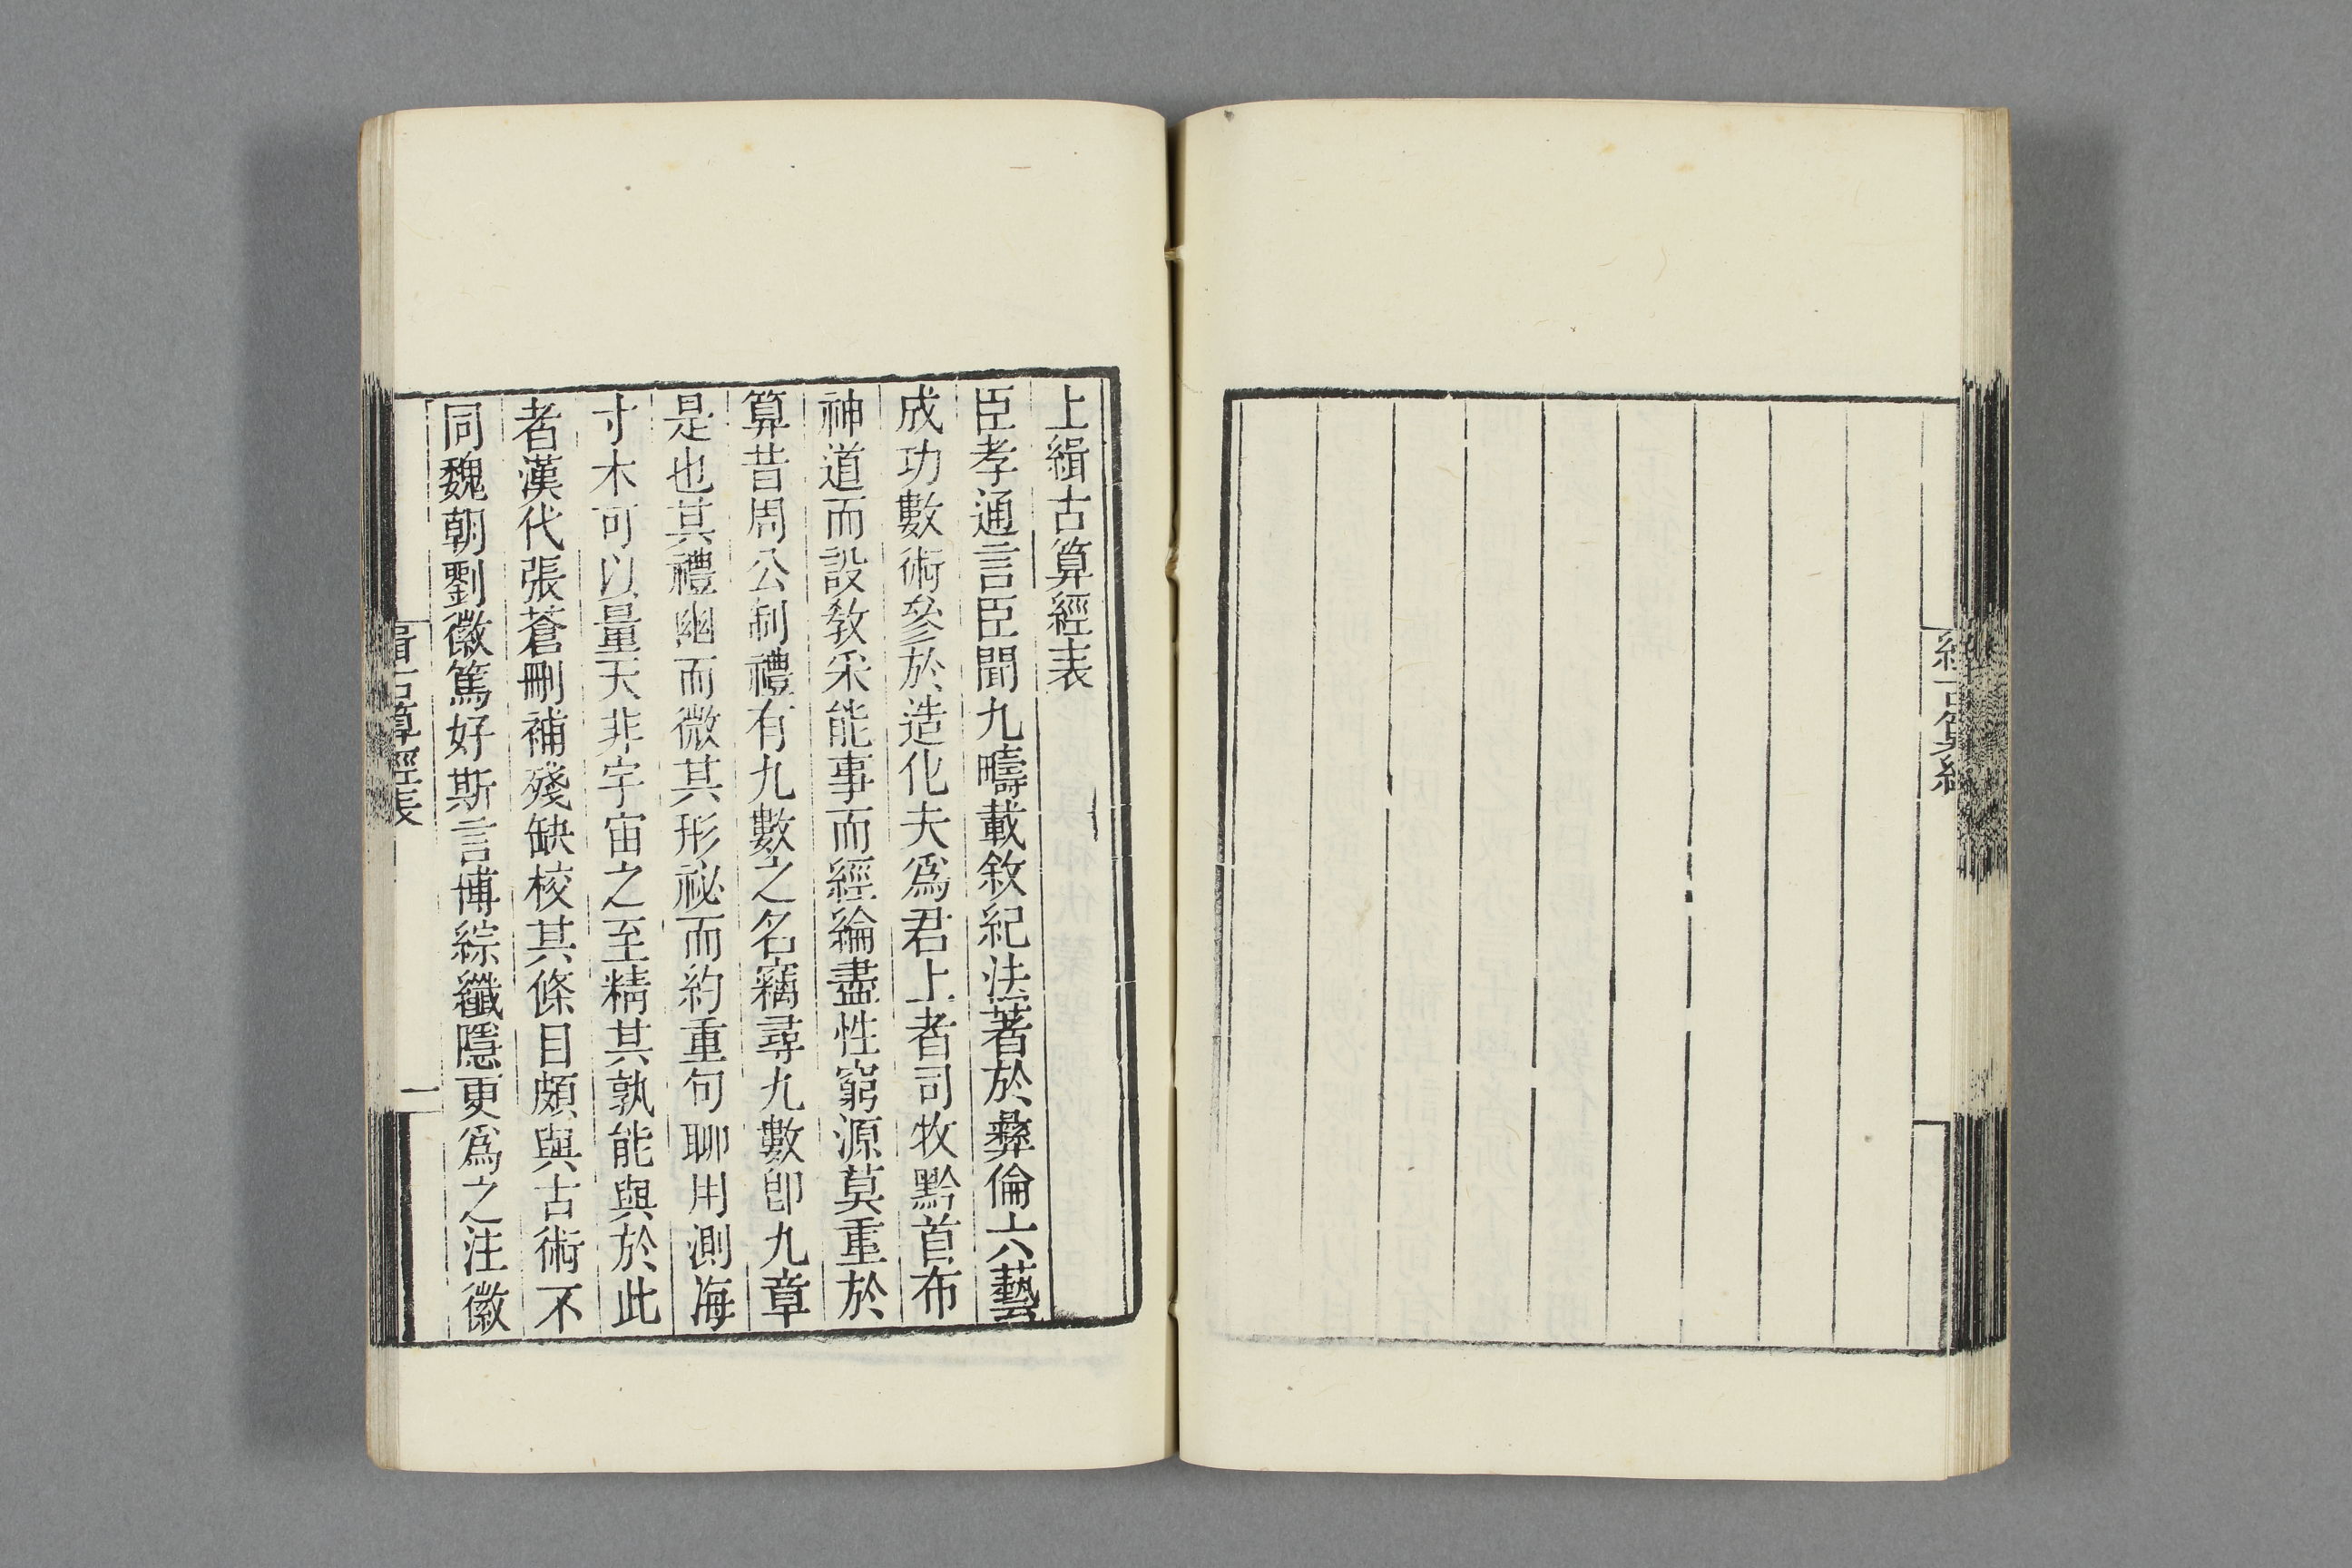 上緝古算經表
臣孝通言臣聞九疇載敘紀法著於彝倫六藝
成功數術參於造化夫爲君上者司牧黔首布
神道而設教采能事而經綸盡性窮源莫重於
算昔周公制禮有九數之名竊尋九數卽九章
是也其禮幽而微其形祕而約重句聊用測海
寸木可以量天非宇宙之至精其孰能與於此
者漢代張蒼刪補殘缺校其條目頗與古術不
同魏朝劉徽篤好斯言博綜纖隱更爲之注徽
緝古算經表
一